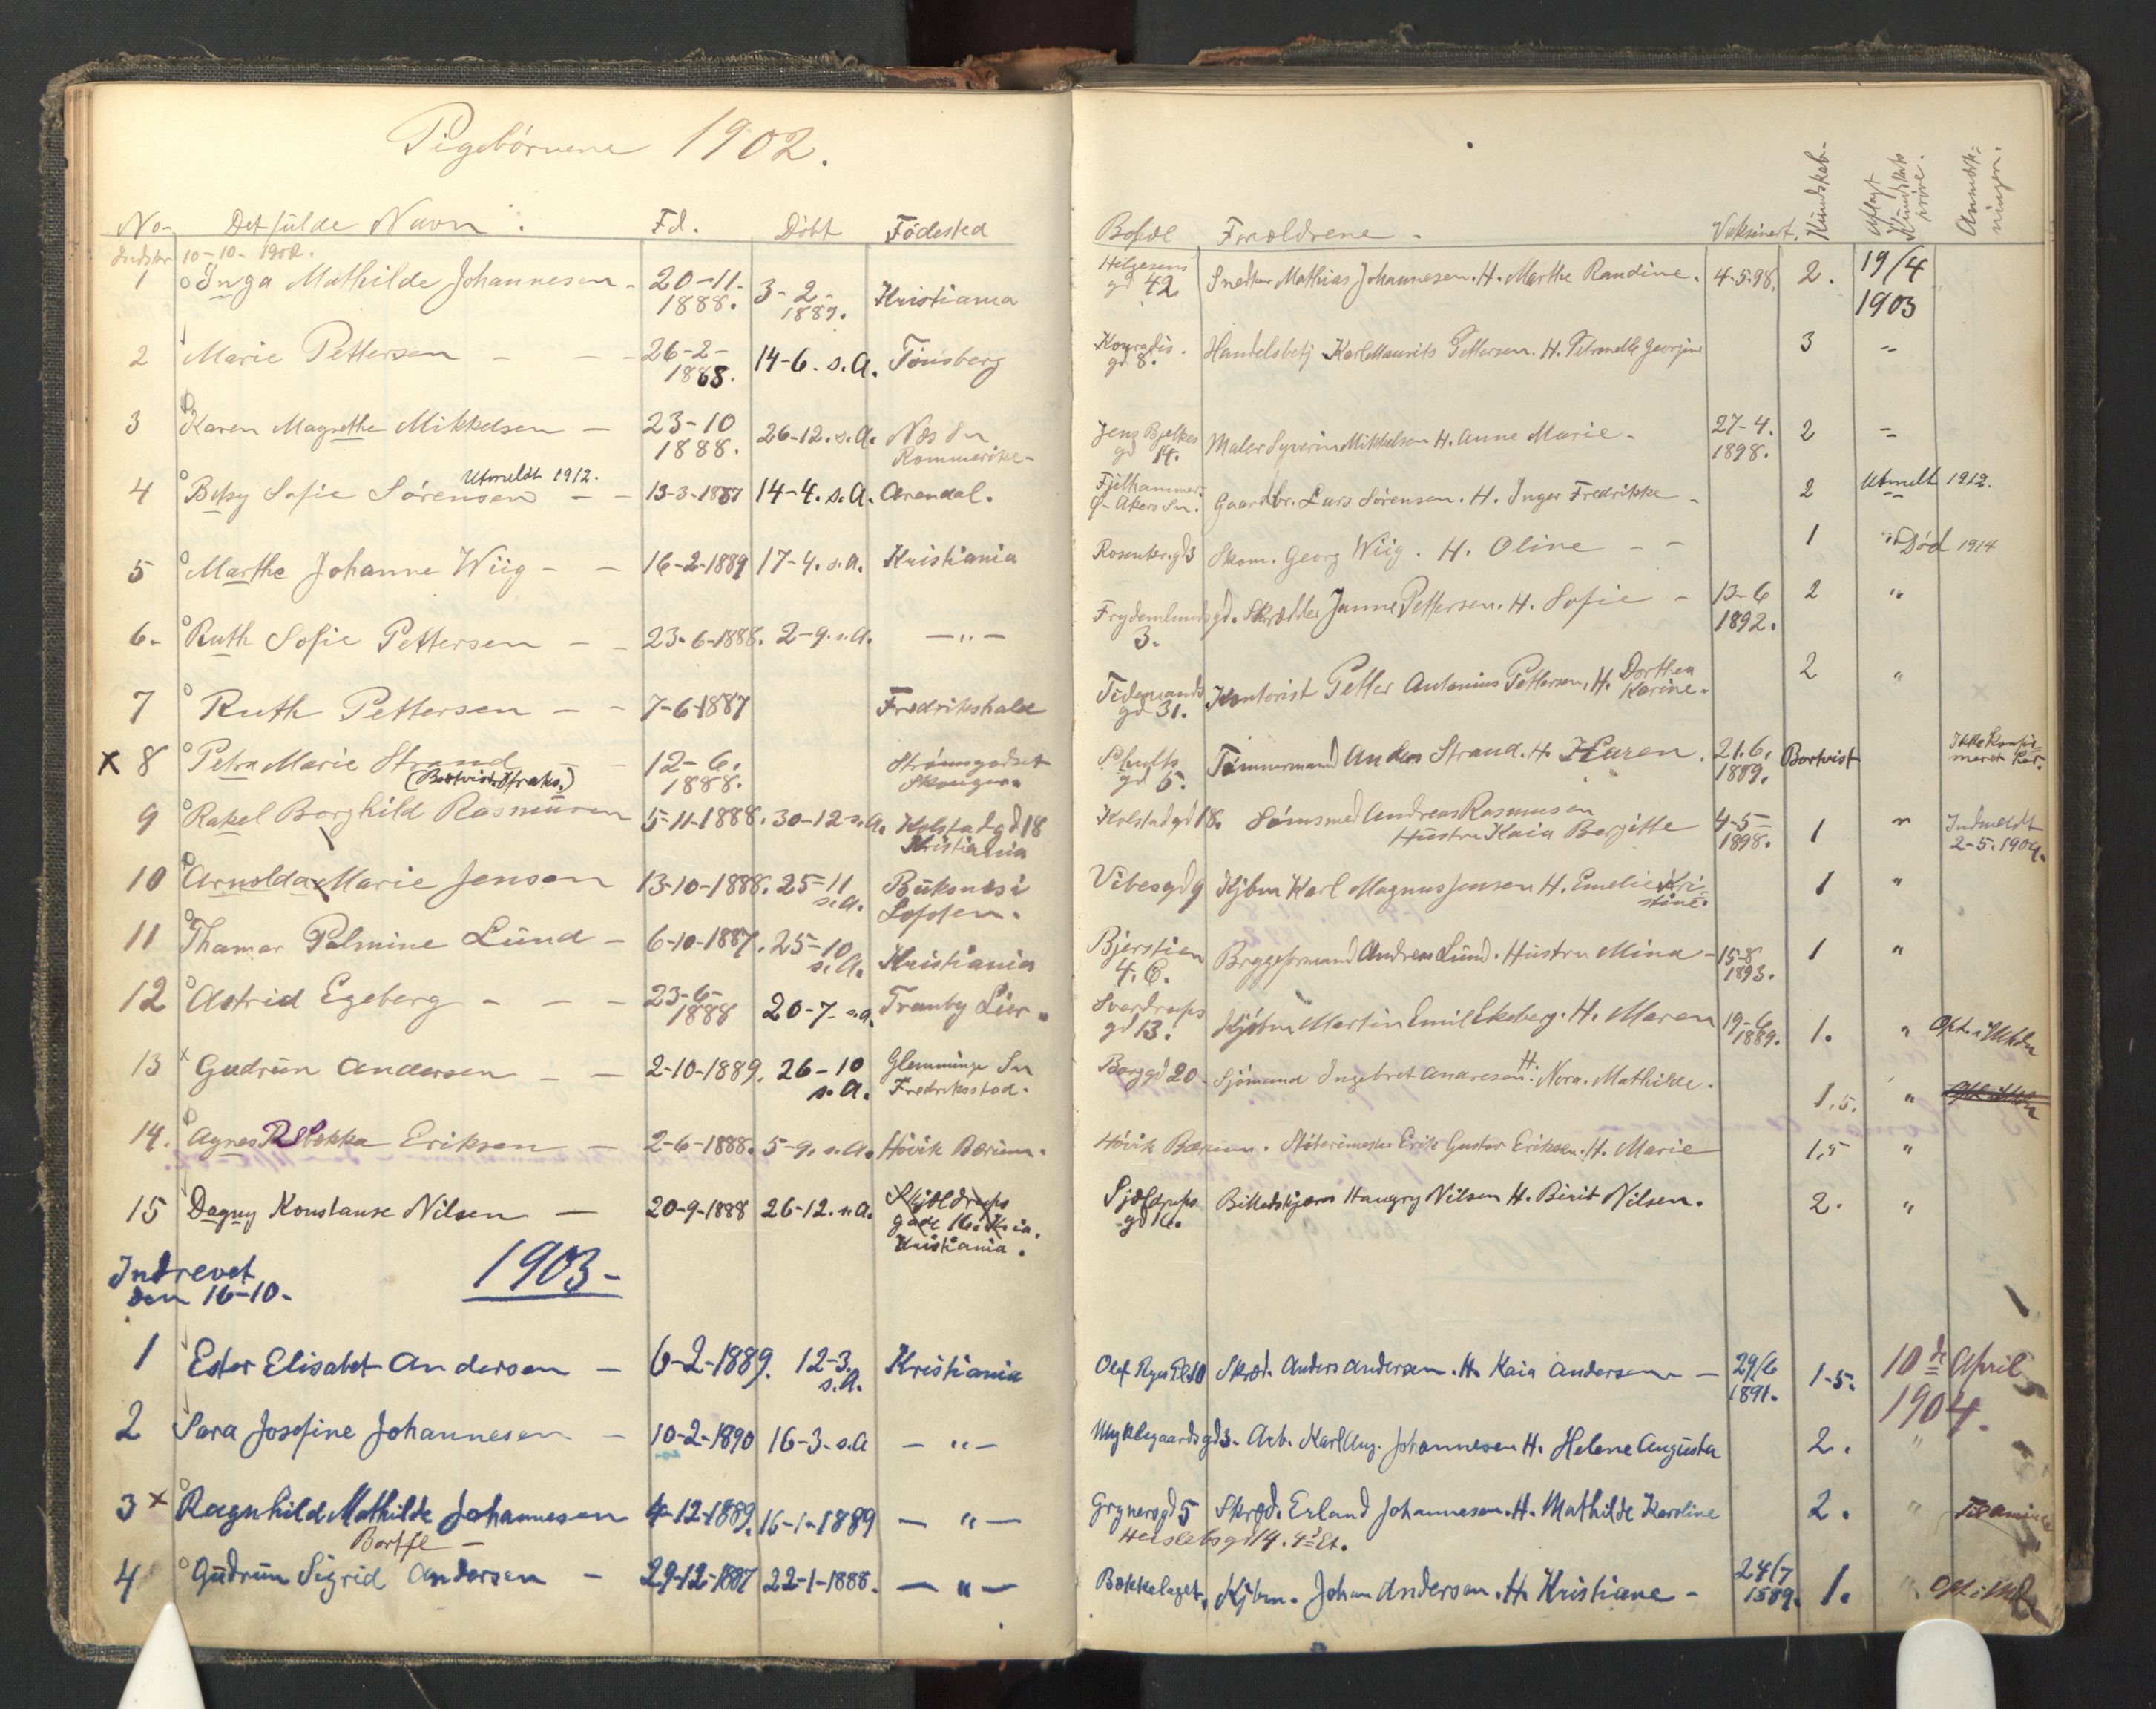 Pigebörnene 1902.
No. Det fulde Navn. Fd. Döbt Födested
Indskr 10-10-1902.
1 Inga Mathilde Johannesen - 20-11-1888. 3-2-1889. Kristiania
2 Marie Pettersen - - - 26-2-1888. 14-6. s.A. Tönsberg
3 Karen Magrethe Mikkelsen - 23-10 1888. 26-12. s.A. Næs Sn Rommerike-
Utmeldt 1912.
4 Betsy Sofie Sörensen - - 13-3-1887 14-4. s.A. Arendal.
5 Marthe Johanne Wiig - - 16-2-1889 17-4. s.A. Kristiania
6. Ruth Sofie Pettersen - - 23-6-1888. 2-9. s.A. - " -
7 Ruth Pettersen - - 7-6-1887 Fredrikshald
x 8 Petra Marie Strand - 12-6. 1888. Strömsgodset Skouger.
(Bortvist straks.)
9 Rakel Borghild Rasmusen 5-11-1888. 30-12 s.A. Kolstadgd 18 Kristiania
10 Arnolda Marie Jensen 13-10-1888. 25-11 s.A. Buksnes i Lofoten.
11 Thamar Palmine Lund - 6-10-1887. 25-10 s.A. Kristiania
12 Astrid Egeberg - - - 23-6-1888 20-7- s.A. Tranby Lier.
13 x Gudrun Andersen - - 2-10-1889. 26-10 s.A. Glemminge Sn Fredriksstad.
14. Agnes Rebekka Eriksen - 2-6-1888. 5-9. s.A. Hövik Bærum.
15 Dagny Konstanse Nilsen - 20-9-1888 26-12. s.A. Skjoldrups gade 16. Kria. Kristiania.
Indrevet den 16-10- 1903-
1 Ester Elisabet Andersen - 6-2-1889. 12-3. s.A. Kristiania
2 Sara Josefine Johannesen - 10-2-1890 16-3-s.A - " -
3 x Ragnhild Mathilde Johannesen 4-12-1889. 16-1-1889 - " -
Bortfl -
4 Gudrun Sigrid Andersen - 29-12-1887 22-1-1888. - " -
Bopæl Forældrene. Vaksinert. Kundskab. Aflagt Kundskabs pröve. Anmærkningen.
Helgesens gd 42 Snedker Mathias Johannesen. H. Marthe Randine. 4-5-98. 2. 19/4 1903
Konradis. gd 8. Handelsbetj Karl Maurits Pettersen. H. Petronelle Georgine 3 "
Jens Bjelkes gd 14. Maler Syverin Mikkelsen H. Anne Marie. 27-4. 1898. 2 "
Fjelhammer. g- Akers Sn. Gaardbr. Lars Sörensen. H. Inger Fredrikke - 2 Utmelt 1912.
Rosenkr.gd 3 Skom. Georg Wiig. H. Oline - - 1 " Död 1914
Frydenlundsgd. 3. Skrædder Janne Pettersen. H. Sofie - 13-6 1892. 2 "
Tidemands gd 31. Kontorist Petter Antonius Pettersen, H. Dorthea Karine. 2 "
Schults gd 5. Tömmermand Anders Strand. H. Karen. 21.6. 1889. Bortvist Ikke Konfirmeret her.
Kolstadgd 18. Sömsmed Andreas Rasmusen Hustru Kaia Bergitte 4-5- 1898. 1 " Indmeldt 2-5.1904.
Vibesgd 9 Kjbm Karl Magnus Jensen H. Emelie Kristine. 1 "
Bjerstien 4. C. Bryggeformand Andreas Lund. Hustru Mina - 15-8 1893. 1 "
Sverdrups gd 13. Kjöbm Martin Emil Ekeberg. H. Maren 19-6 1889. 1. "
Borggd 20 - Sjömand Ingebret Andresen. H. Nora. Mathilde. 1,5. "
Hövik Bærum. Stöterimester Erik Gustav Eriksen. H. Marie 1,5 "
Sjoldrups gd 16. Billedskjærer Haugry Nilsen H. Birit Nilsen. 2. "
Olaf Ryes Pl. 10 Skræd. Anders Andersen. H. Kaia Andersen - 29/6 1891. 1-5. 10de April 1904.
Myklegaardsgd 3. Arb. Karl Aug. Johannesen H. Helene Augusta 2. "
Grynersgd 5 Skræd. Erland Johannesen. H. Mathilde Karoline 2. "
Heislebsgd 14. 4d Et.
Bækkelaget, Kjbm. Johan Andersen. H. Kristiane - 24/7 1889. 1. "